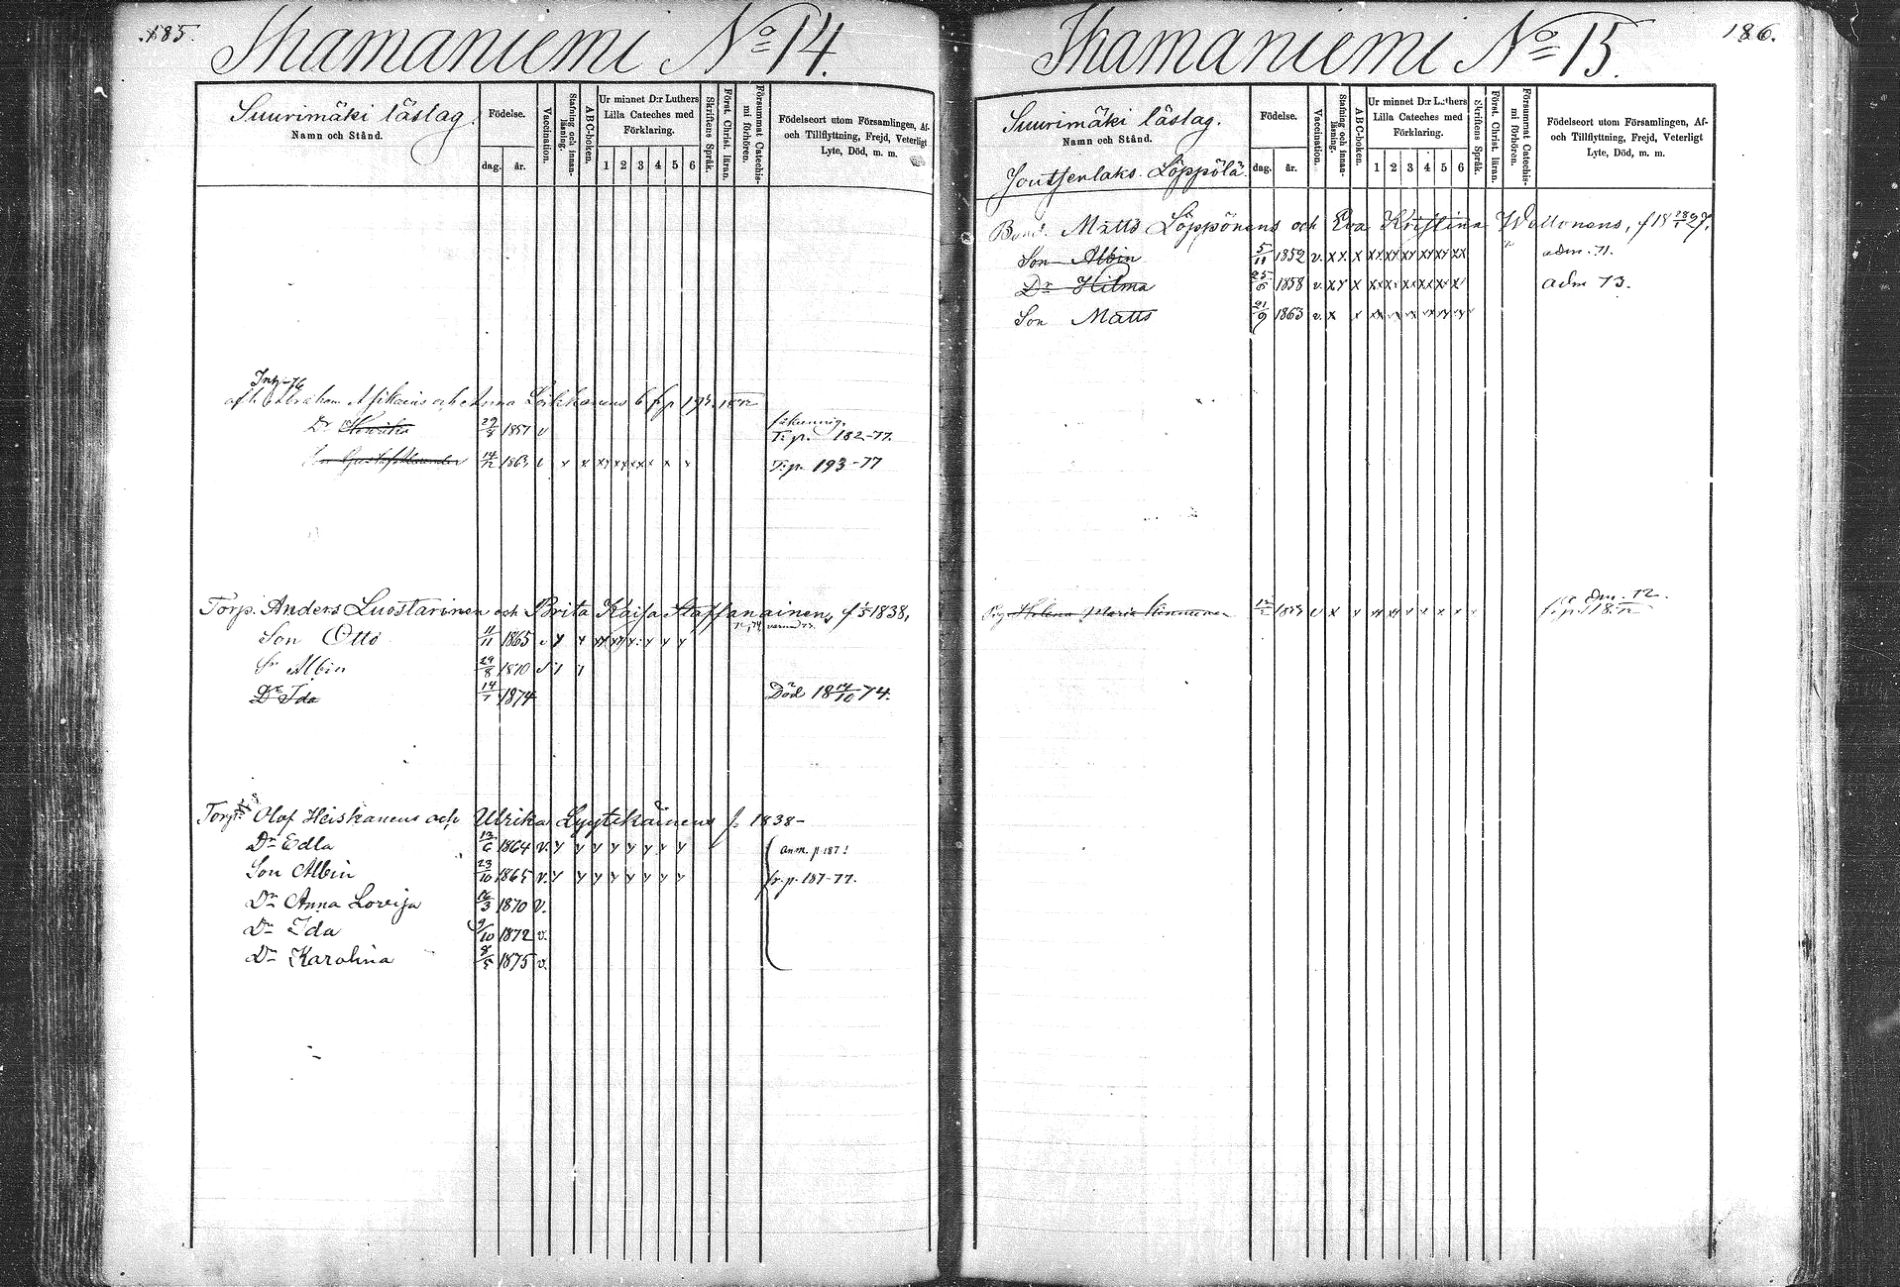 185.
Ihamaniemi No 14.
Suurimäki läslag.
Namn och Stånd.
Födelse.
dag. år.
Vaccination.
Stafning och innan-läsning.
ABC-boken.
Ur minnet D:r Luthers Lilla Cateches med Förklaring.
1 2 3 4 5 6
Skriftens Språk.
Först. Christ. läran.
Försummat Catechis-mi förhören.
Födelseort utom Församlingen, Af- och Tillflyttning, Frejd, Veterligt Lyte, Död, m. m.
Inh. 76
Abraham och Anna
Dr 29/8 1857 v
T. p. 182-77.
14/12 1863 v x x xx xx xx x x x T. p. 193-77
Torp. Anders Luostarinen och Brita Kaisa Staffanainens, f 1838,
Son Otto 11/11 1865 v y y y y y y
Sn Albin 29/8 1870 v
Dr Ida 14/7 1874 Död 18 14/10 74.
Torp. Olof Heiskanens och Ulrika Lyytikäinens f. 1838-
Dr Edla 12/6 1864 v. y y y y y y y y anm. p 187!
Son Albin 23/10 1865 v. y y y y y y y y fr. p. 187-77.
Dr Anna Lovisa 16/3 1870 v.
Dr Ida 9/10 1872 v.
Dr Karolina 8/5 1875 v.
186.
Ihamaniemi No 15.
Suurimäki läslag.
Namn och Stånd.
Joutsenlaks. Löppölä
Födelse.
dag. år.
Vaccination.
Stafning och innan-läsning.
ABC-boken.
Ur minnet D:r Luthers Lilla Cateches med Förklaring.
1 2 3 4 5 6
Skriftens Språk.
Först. Christ. läran.
Försummat Catechis-mi förhören.
Födelseort utom Församlingen, Af- och Tillflyttning, Frejd, Veterligt Lyte, Död, m. m.
Bond. Matts Löppönens och Eva Kristina f 18 28/1 27.
Son Albin 5/11 1852 v. xx x xx xx xx xx xx xx adm. 71.
Dr Hilma 25/6 1858 v. x y x xx x xx x adm 73.
Son Matts 21/9 1863 v. x x xx
Pig Helena Maria Kinnunen 12/2 v x
adm. 72.